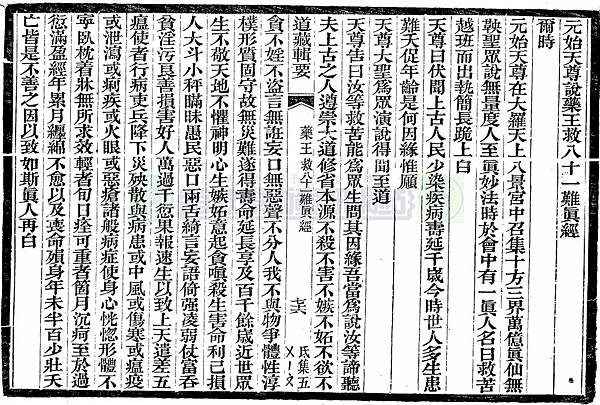 元始天尊說藥王救八十一難眞經
爾時
元始天尊在大羅天上八景宮中召集十方三界萬億眞仙無
鞅聖眾說無量度人至眞妙法時於會中有一眞人名曰救苦
越班而出執簡長跪上白
天尊曰伏聞上古人民少染疾病壽延千歲今時世人多生患
難夭促年齡是何因緣惟願
天尊大聖爲眾演說得聞至道
天尊告曰汝等救苦能爲眾生問其因緣吾當爲說汝等諦聽
夫上古之人遵崇大道修省本源不殺不害不嫉不妬不欲不
道藏輯要
藥王救八十一難眞經
氐集五
貪不婬不盜言無誑妄口無惡聲不分人我不與物爭體性淳
樸形質固守故無災難遂得壽命延長享及百千餘歲近世眾
生不敬天地不懼神明心生嫉妬意起貪嗔殺生害命利己損
人大斗小秤瞞昧愚民惡口兩舌綺言妄語倚强凌弱仗富吞
貧淫污良善損害好人萬過千愆果報速生以致上天遣差五
瘟使者行病吏兵降下災殃散與病患或中風或傷寒或瘟疫
或泄瀉或痢疾或火眼或惡瘡諸般病症使身心恍惚形體不
寧臥枕着牀無所求效輕者旬日痊可重者箇月沉疴至於過
愆滿盈經年累月纏綿不愈以及喪命殞身年未半百少壯夭
亡皆是不善之因以致如斯眞人再白